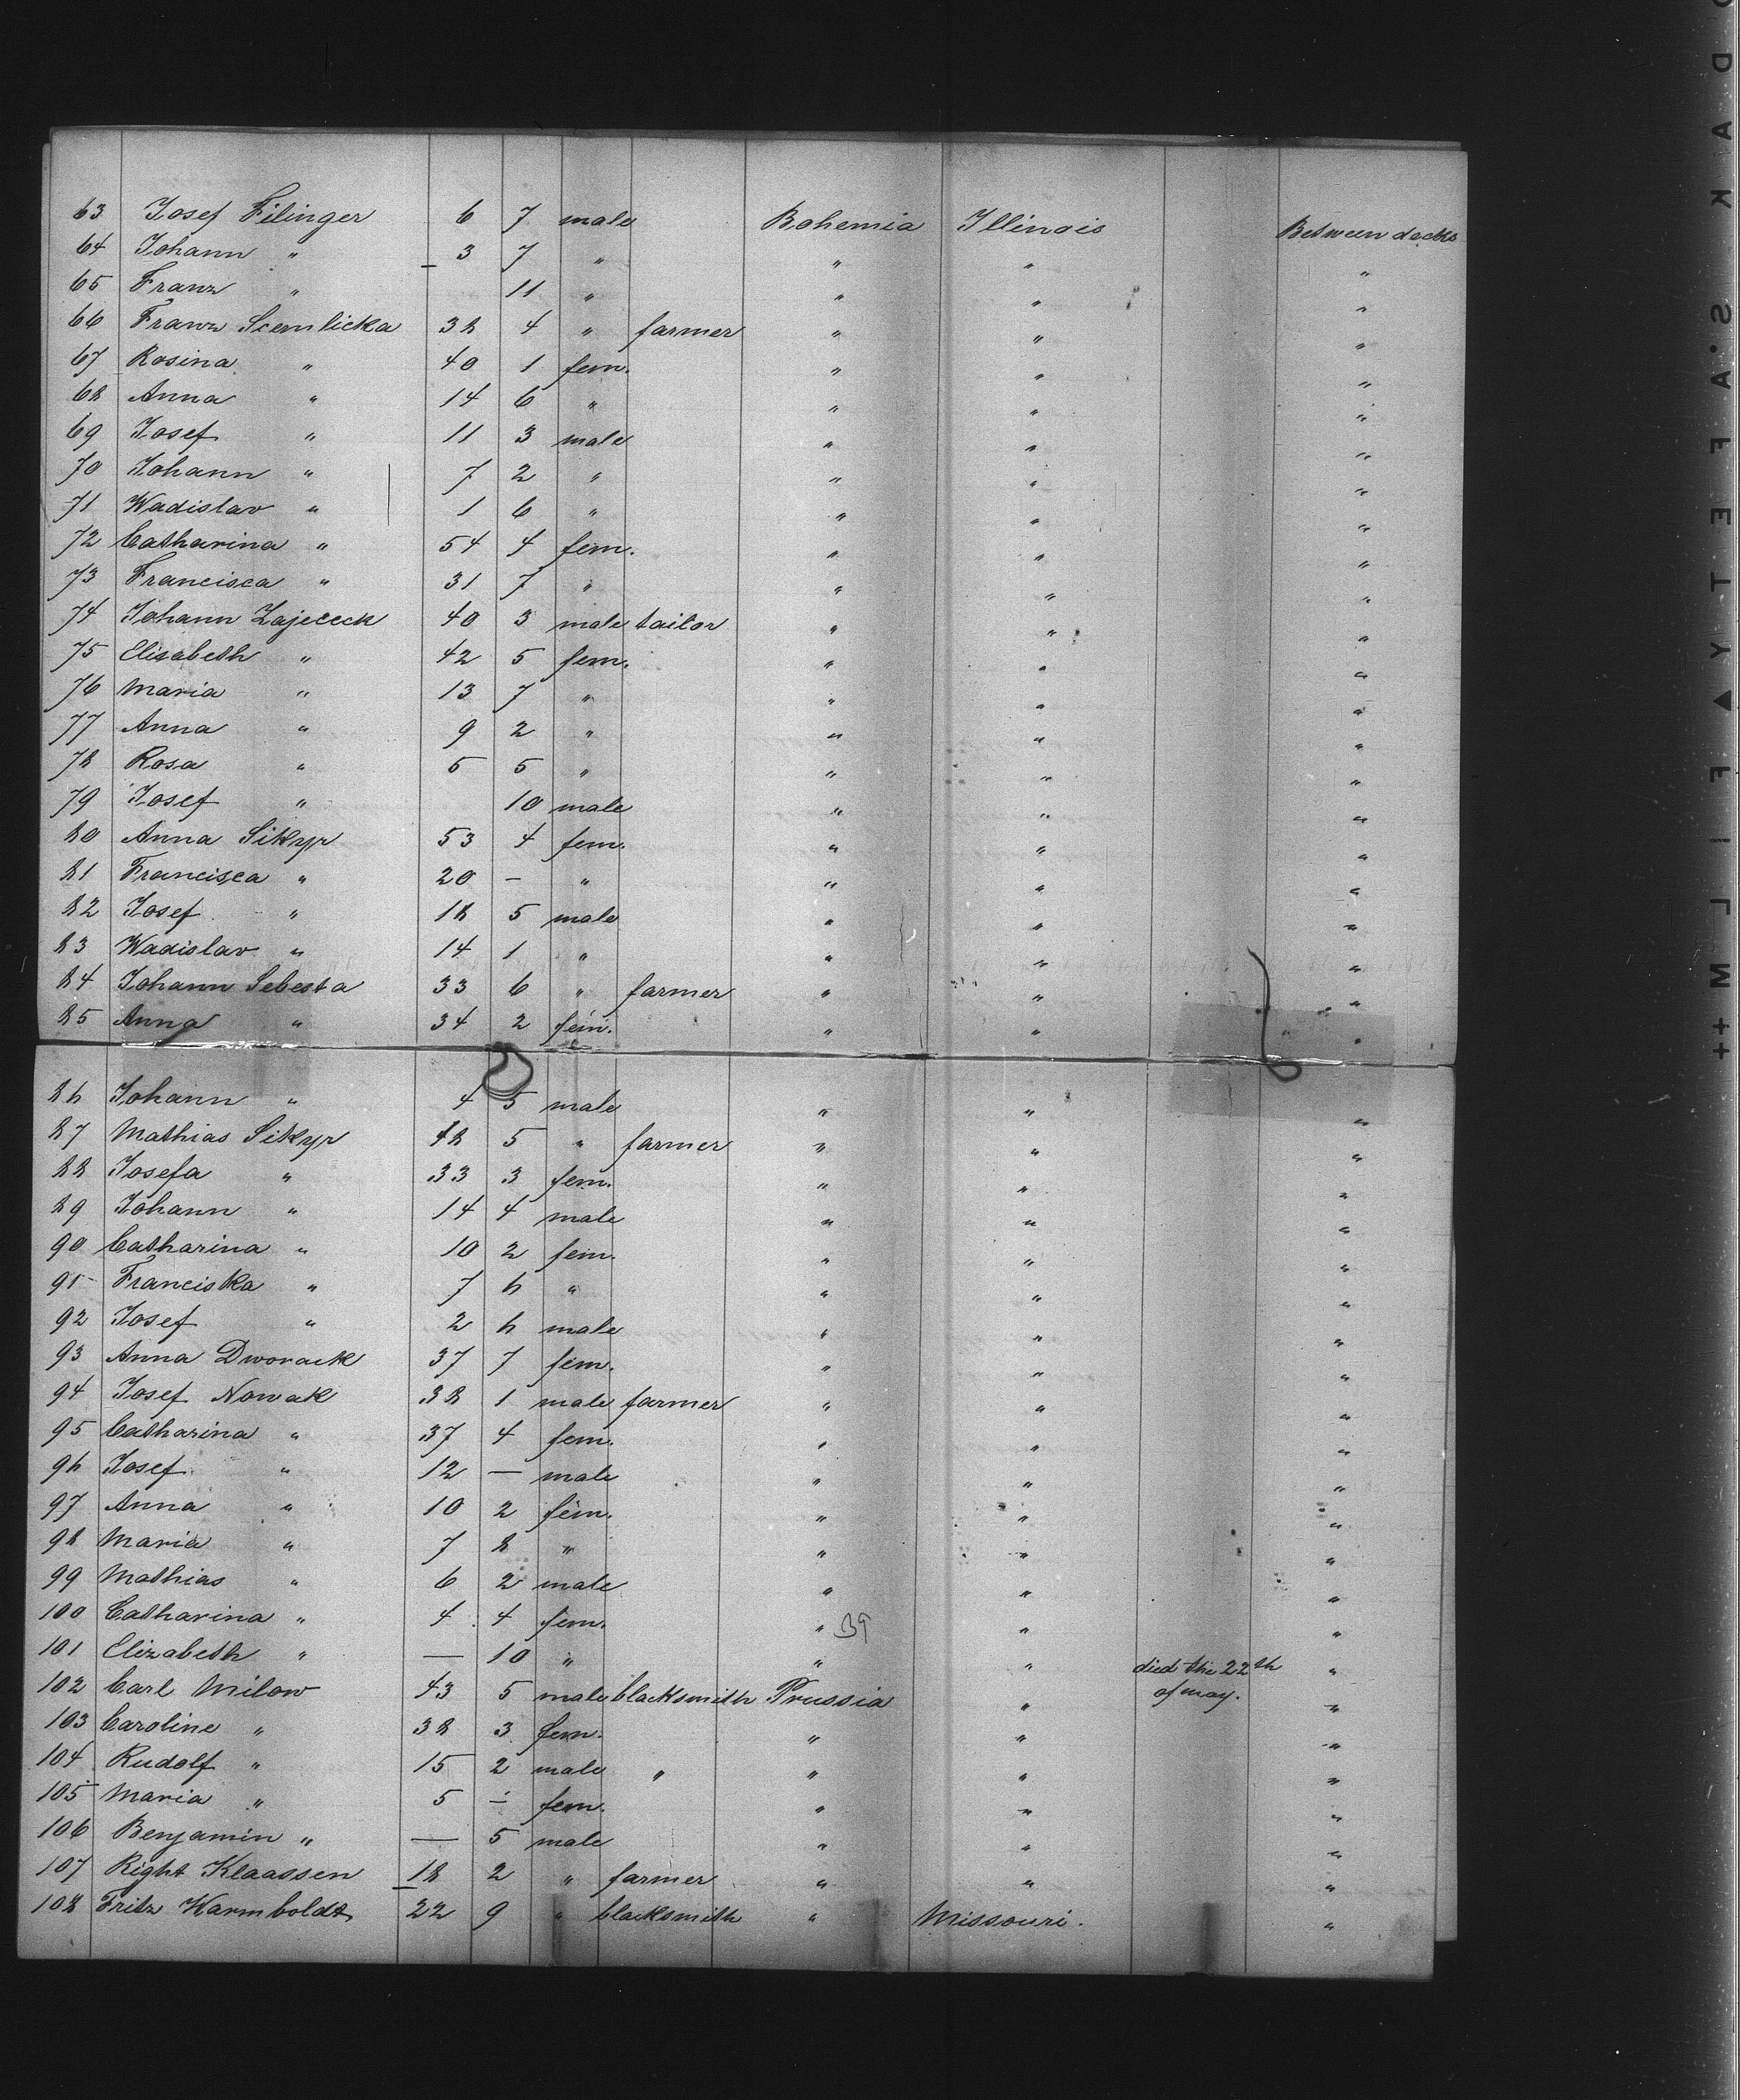 63 Josef Filinger 6 7 male Bohemia Illinois Between decks
64 Johann " 3 7 " " " "
65 Franz " 11 " " " "
66 Franz Scemlicka 38 4 " farmer " " "
67 Rosina " 40 1 fem. " " "
68 Anna " 14 6 " " " "
69 Josef " 11 3 male " " "
70 Johann " 7 2 " " " "
71 Wadislav " 1 6 " " " "
72 Catharina " 54 4 fem. " " "
73 Francisca " 31 7 " " " "
74 Johann Zajececk 40 3 male tailor " " "
75 Elisabeth " 42 5 fem. " " "
76 Maria " 13 7 " " " "
77 Anna " 9 2 " " " "
78 Rosa " 5 5 " " " "
79 Josef " 10 male " " "
80 Anna Sikyr 53 4 fem. " " "
81 Francisca " 20 – " " " "
82 Josef " 18 5 male " " "
83 Wadislav " 14 1 " " " "
84 Johann Sebesta 33 6 " farmer " " "
85 Anna " 34 2 fem. " " "
86 Johann " 4 5 male " " "
87 Mathias Sikyr 48 5 " farmer " " "
88 Josefa " 33 3 fem. " " "
89 Johann " 14 4 male " " "
90 Catharina " 10 2 fem. " " "
91 Franciska " 7 6 " " " "
92 Josef " 2 6 male " " "
93 Anna Dworack 37 7 fem. " " "
94 Josef Nowak 38 1 male farmer " " "
95 Catharina " 37 4 fem. " " "
96 Josef " 12 — male " " "
97 Anna " 10 2 fem. " " "
98 Maria " 7 8 " " " "
99 Mathias " 6 2 male " " "
100 Catharina " 4 4 fem. " 39 " "
101 Elizabeth " — 10 " " " died the 22th of may. "
102 Carl Milow 43 5 male blacksmith Prussia " "
103 Caroline " 38 3 fem. " " "
104 Rudolf " 15 2 male " " " "
105 Maria " 5 – fem. " " "
106 Benjamin " — 5 male " " "
107 Right Klaassen 18 2 " farmer " " "
108 Fritz Karmboldt 22 9 " blacksmith " Missouri. "
KODAK SAFETY FILM